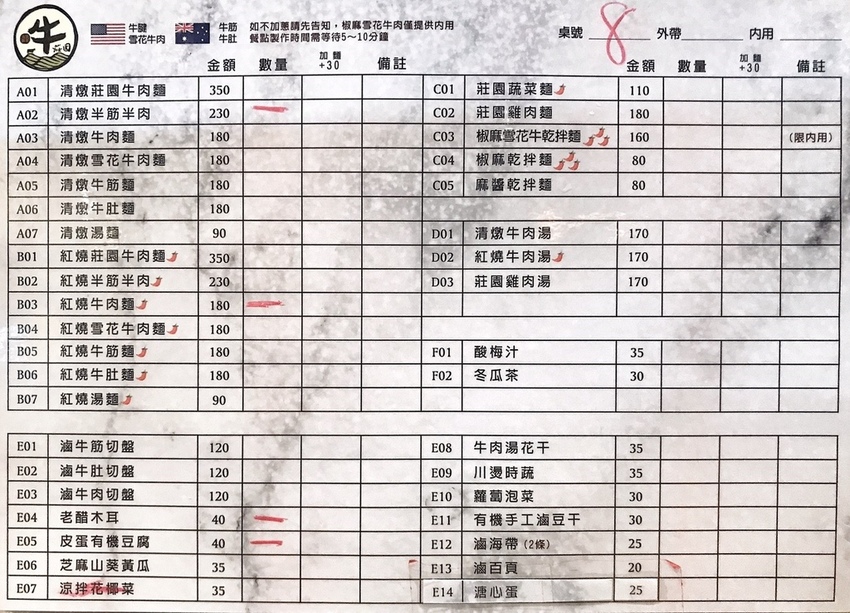 牛
莊園
牛腱
雪花牛肉
牛筋
牛肚
如不加蔥請先告知，椒麻雪花牛肉僅提供內用
餐點製作時間需等待5～10分鐘
桌號 8 外帶 內用
金額 數量 加麵+30 備註
A01 清燉莊園牛肉麵 350
A02 清燉半筋半肉 230
A03 清燉牛肉麵 180
A04 清燉雪花牛肉麵 180
A05 清燉牛筋麵 180
A06 清燉牛肚麵 180
A07 清燉湯麵 90
B01 紅燒莊園牛肉麵 350
B02 紅燒半筋半肉 230
B03 紅燒牛肉麵 180
B04 紅燒雪花牛肉麵 180
B05 紅燒牛筋麵 180
B06 紅燒牛肚麵 180
B07 紅燒湯麵 90
金額 數量 加麵+30 備註
C01 莊園蔬菜麵 110
C02 莊園雞肉麵 180
C03 椒麻雪花牛乾拌麵 160 (限內用)
C04 椒麻乾拌麵 80
C05 麻醬乾拌麵 80
D01 清燉牛肉湯 170
D02 紅燒牛肉湯 170
D03 莊園雞肉湯 170
F01 酸梅汁 35
F02 冬瓜茶 30
E01 滷牛筋切盤 120
E02 滷牛肚切盤 120
E03 滷牛肉切盤 120
E04 老醋木耳 40
E05 皮蛋有機豆腐 40
E06 芝麻山葵黃瓜 35
E07 涼拌花椰菜 35
E08 牛肉湯花干 35
E09 川燙時蔬 35
E10 蘿蔔泡菜 30
E11 有機手工滷豆干 30
E12 滷海帶 (2條) 25
E13 滷百頁 20
E14 溏心蛋 25